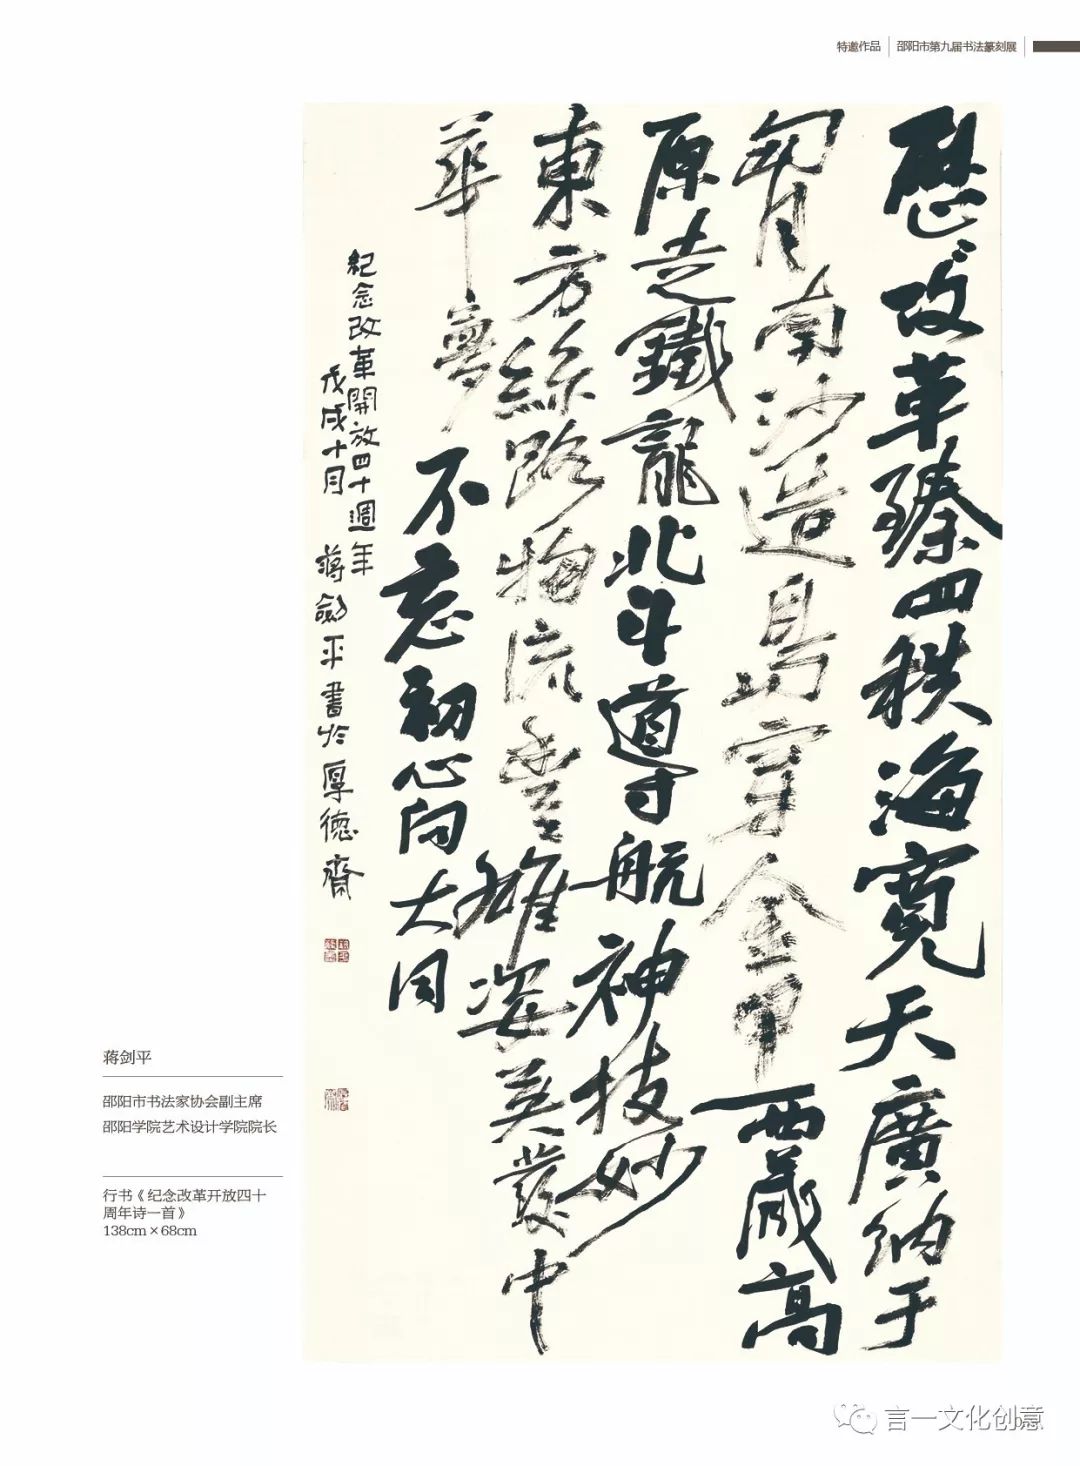 特邀作品 邵阳市第九届书法篆刻展
歷〻改革臻四秩海寬天廣納于
胸南沙造島穿金甲西藏高
原走鐵龍北斗導航神技妙
東方絲路物流豐雄姿英發中
華夢不忘初心向大同
紀念改革開放四十週年
戊戌十月蔣劍平書於厚德齋
蒋剑平
邵阳市书法家协会副主席
邵阳学院艺术设计学院院长
行书《纪念改革开放四十
周年诗一首》
138cm×68cm
言一文化创意